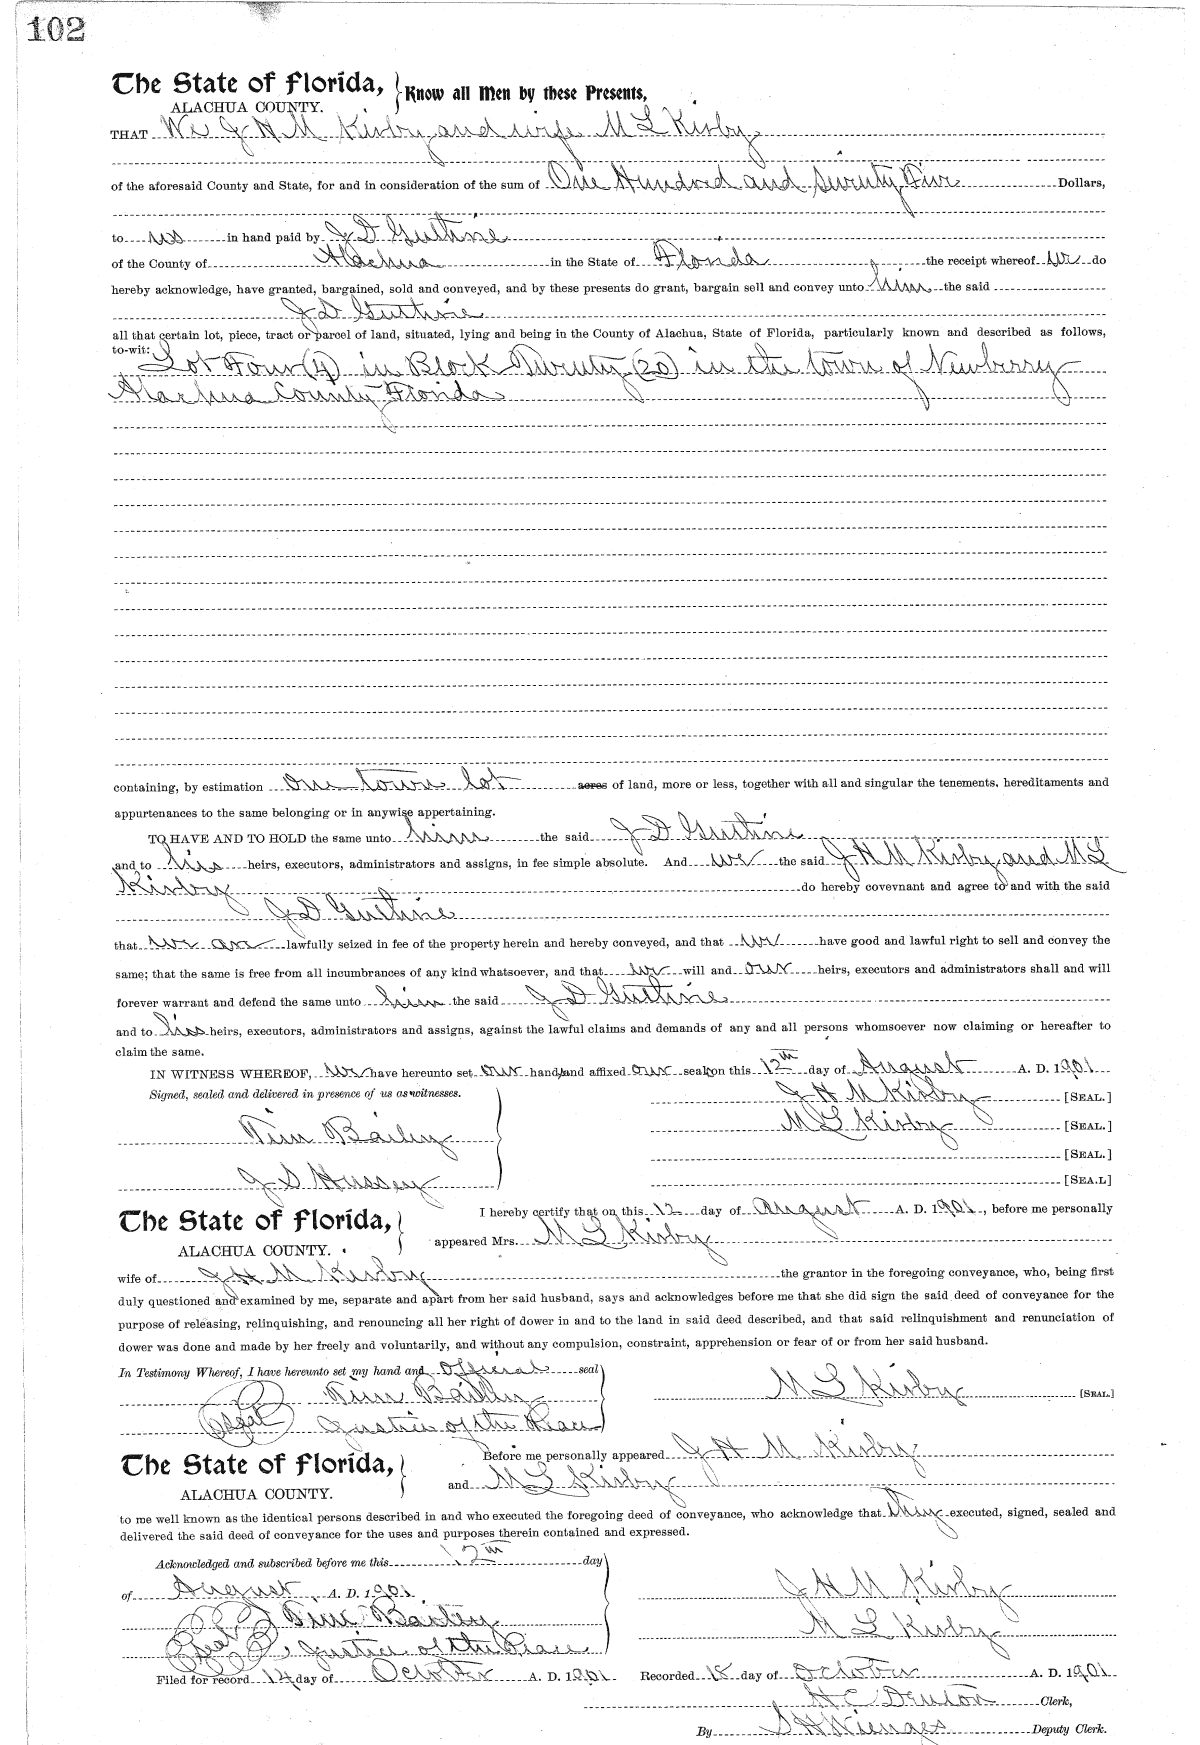 102
The State of Florida,
ALACHUA COUNTY.
Know all Men by these Presents,
THAT We J H M Kirby and wife M L Kirby
of the aforesaid County and State, for and in consideration of the sum of One Hundred and Seventy Five Dollars,
to us in hand paid by J D Guthrie
of the County of Alachua in the State of Florida the receipt whereof we do
hereby acknowledge, have granted, bargained, sold and conveyed, and by these presents do grant, bargain sell and convey unto him the said
J D Guthrie
all that certain lot, piece, tract or parcel of land, situated, lying and being in the County of Alachua, State of Florida, particularly known and described as follows,
to-wit: Lot Four (4) in Block Twenty (20) in the town of Newberry
Alachua County Florida
containing, by estimation One town lot acres of land, more or less, together with all and singular the tenements, hereditaments and
appurtenances to the same belonging or in anywise appertaining.
TO HAVE AND TO HOLD the same unto him the said J D Guthrie
and to his heirs, executors, administrators and assigns, in fee simple absolute. And we the said J H M Kirby and M L
Kirby do hereby covevnant and agree to and with the said
J D Guthrie
that we are lawfully seized in fee of the property herein and hereby conveyed, and that we have good and lawful right to sell and convey the
same; that the same is free from all incumbrances of any kind whatsoever, and that we will and our heirs, executors and administrators shall and will
forever warrant and defend the same unto him the said J D Guthrie
and to his heirs, executors, administrators and assigns, against the lawful claims and demands of any and all persons whomsoever now claiming or hereafter to
claim the same.
IN WITNESS WHEREOF, we have hereunto set our hands and affixed our seals on this 12th day of August A. D. 1901
Signed, sealed and delivered in presence of us as witnesses.
J H M Kirby [SEAL.]
M L Kirby [SEAL.]
Tim Bailey
[SEAL.]
J S Hussey
[SEA.L]
The State of Florida,
ALACHUA COUNTY.
I hereby certify that on this 12 day of August A. D. 1901, before me personally
appeared Mrs. M L Kirby
wife of J H M Kirby the grantor in the foregoing conveyance, who, being first
duly questioned and examined by me, separate and apart from her said husband, says and acknowledges before me that she did sign the said deed of conveyance for the
purpose of releasing, relinquishing, and renouncing all her right of dower in and to the land in said deed described, and that said relinquishment and renunciation of
dower was done and made by her freely and voluntarily, and without any compulsion, constraint, apprehension or fear of or from her said husband.
In Testimony Whereof, I have hereunto set my hand and official seal
Tim Bailey
M L Kirby [SEAL.]
Seal Justice of the Peace
The State of Florida,
ALACHUA COUNTY.
Before me personally appeared J H M Kirby
and M L Kirby
to me well known as the identical persons described in and who executed the foregoing deed of conveyance, who acknowledge that they executed, signed, sealed and
delivered the said deed of conveyance for the uses and purposes therein contained and expressed.
Acknowledged and subscribed before me this 12th day
of August A. D. 1901
J H M Kirby
Tim Bailey
M L Kirby
Seal Justice of the Peace
Filed for record 14 day of October A. D. 1901 Recorded 18 day of October A. D. 1901
H C Denton Clerk,
By S H Wienges Deputy Clerk.